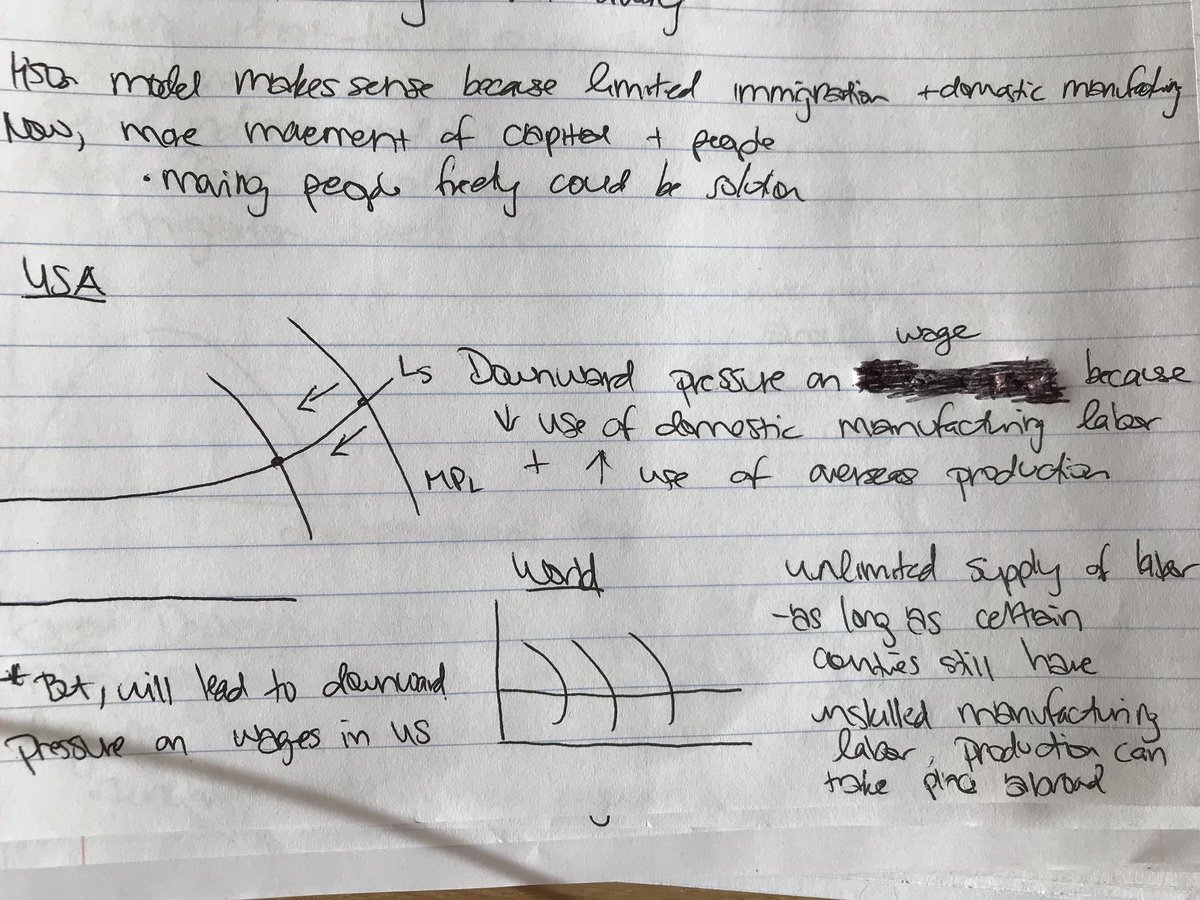 model makes sense because limited immigration + domestic manufacturing
Now, more movement of capital + people
• moving people freely could be solution
USA
wage
Ls Downward pressure on because
↓ use of domestic manufacturing labor
+ ↑ use of overseas production
MPL
World
unlimited supply of labor
- as long as certain
countries still have
unskilled manufacturing
labor, production can
take place abroad
* But, will lead to downward
pressure on wages in US